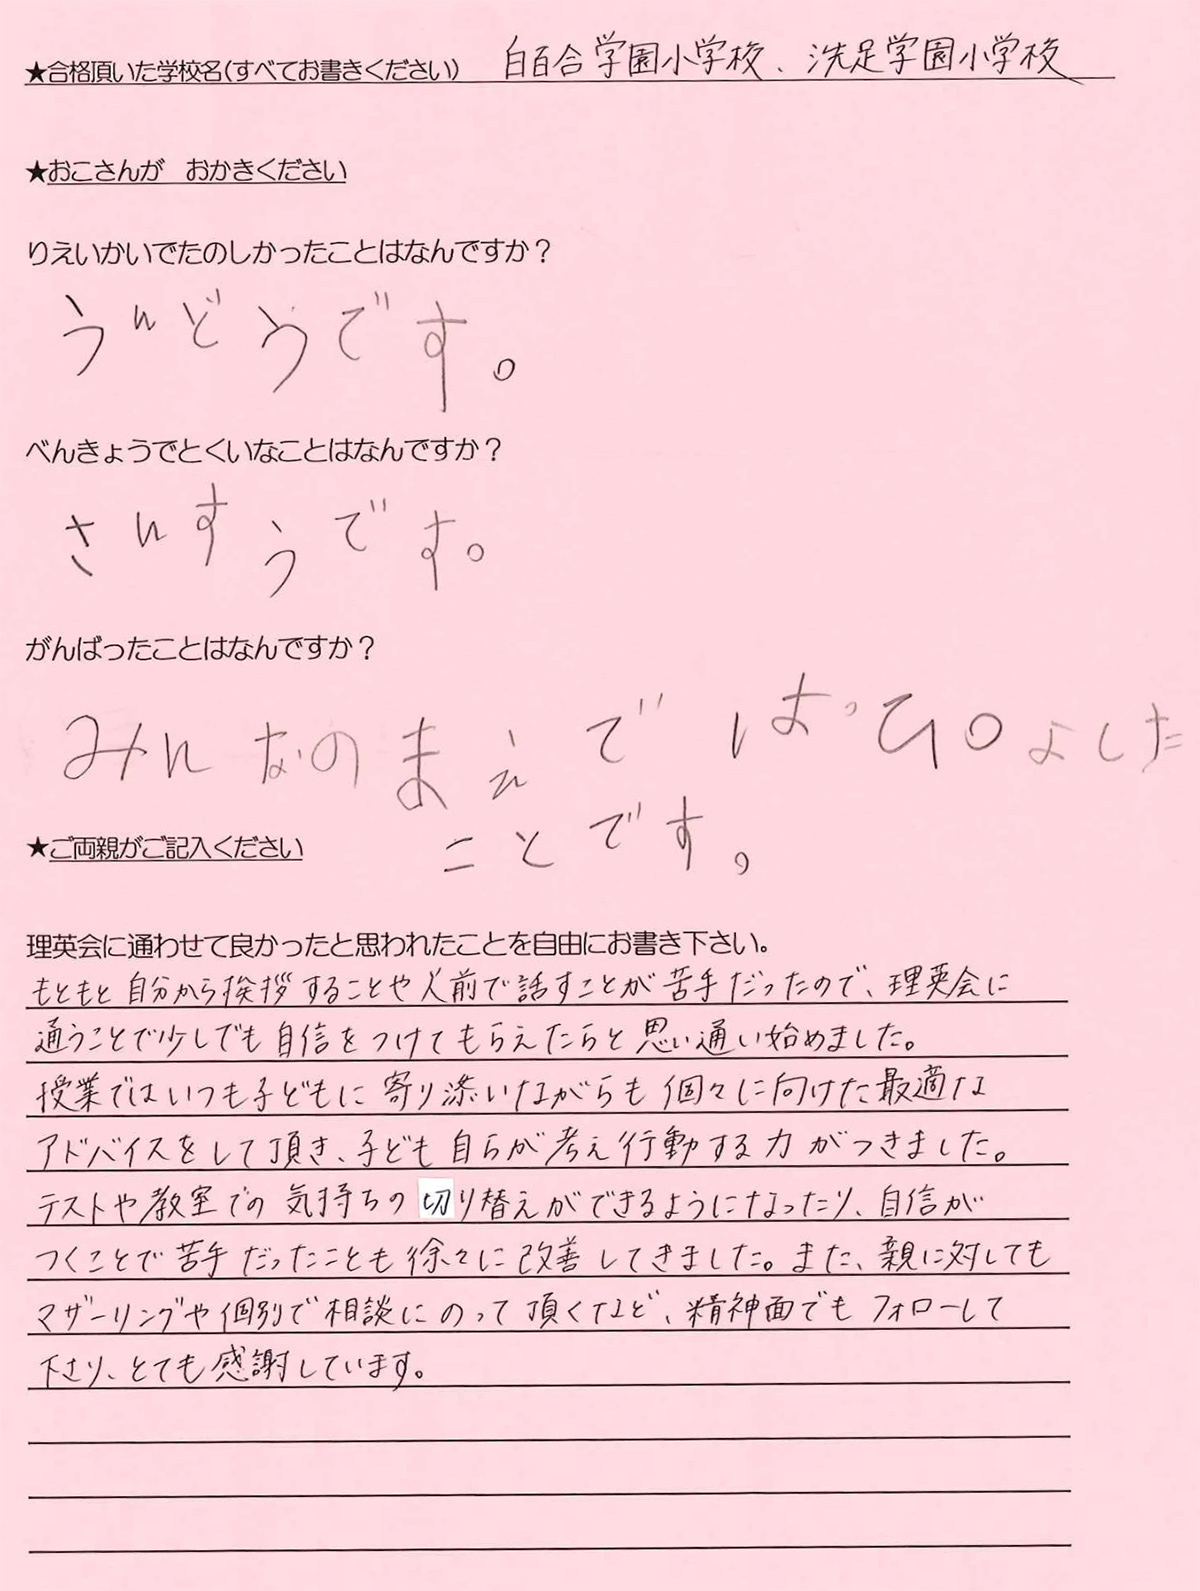 ★合格頂いた学校名(すべてお書きください) 白百合学園小学校、洗足学園小学校
★おこさんが おかきください
りえいかいでたのしかったことはなんですか？
うんどうです。
べんきょうでとくいなことはなんですか？
さんすうです。
がんばったことはなんですか？
みんなのまえで はっぴょよした
ことです。
★ご両親がご記入ください
理英会に通わせて良かったと思われたことを自由にお書き下さい。
もともと自分から挨拶することや人前で話すことが苦手だったので、理英会に
通うことで少しでも自信をつけてもらえたらと思い通い始めました。
授業ではいつも子どもに寄り添いながらも個々に向けた最適な
アドバイスをして頂き、子ども自らが考え行動する力がつきました。
テストや教室での気持ちの切り替えができるようになったり、自信が
つくことで苦手だったことも徐々に改善してきました。また、親に対しても
マザーリングや個別で相談にのって頂くなど、精神面でもフォローして
下さり、とても感謝しています。